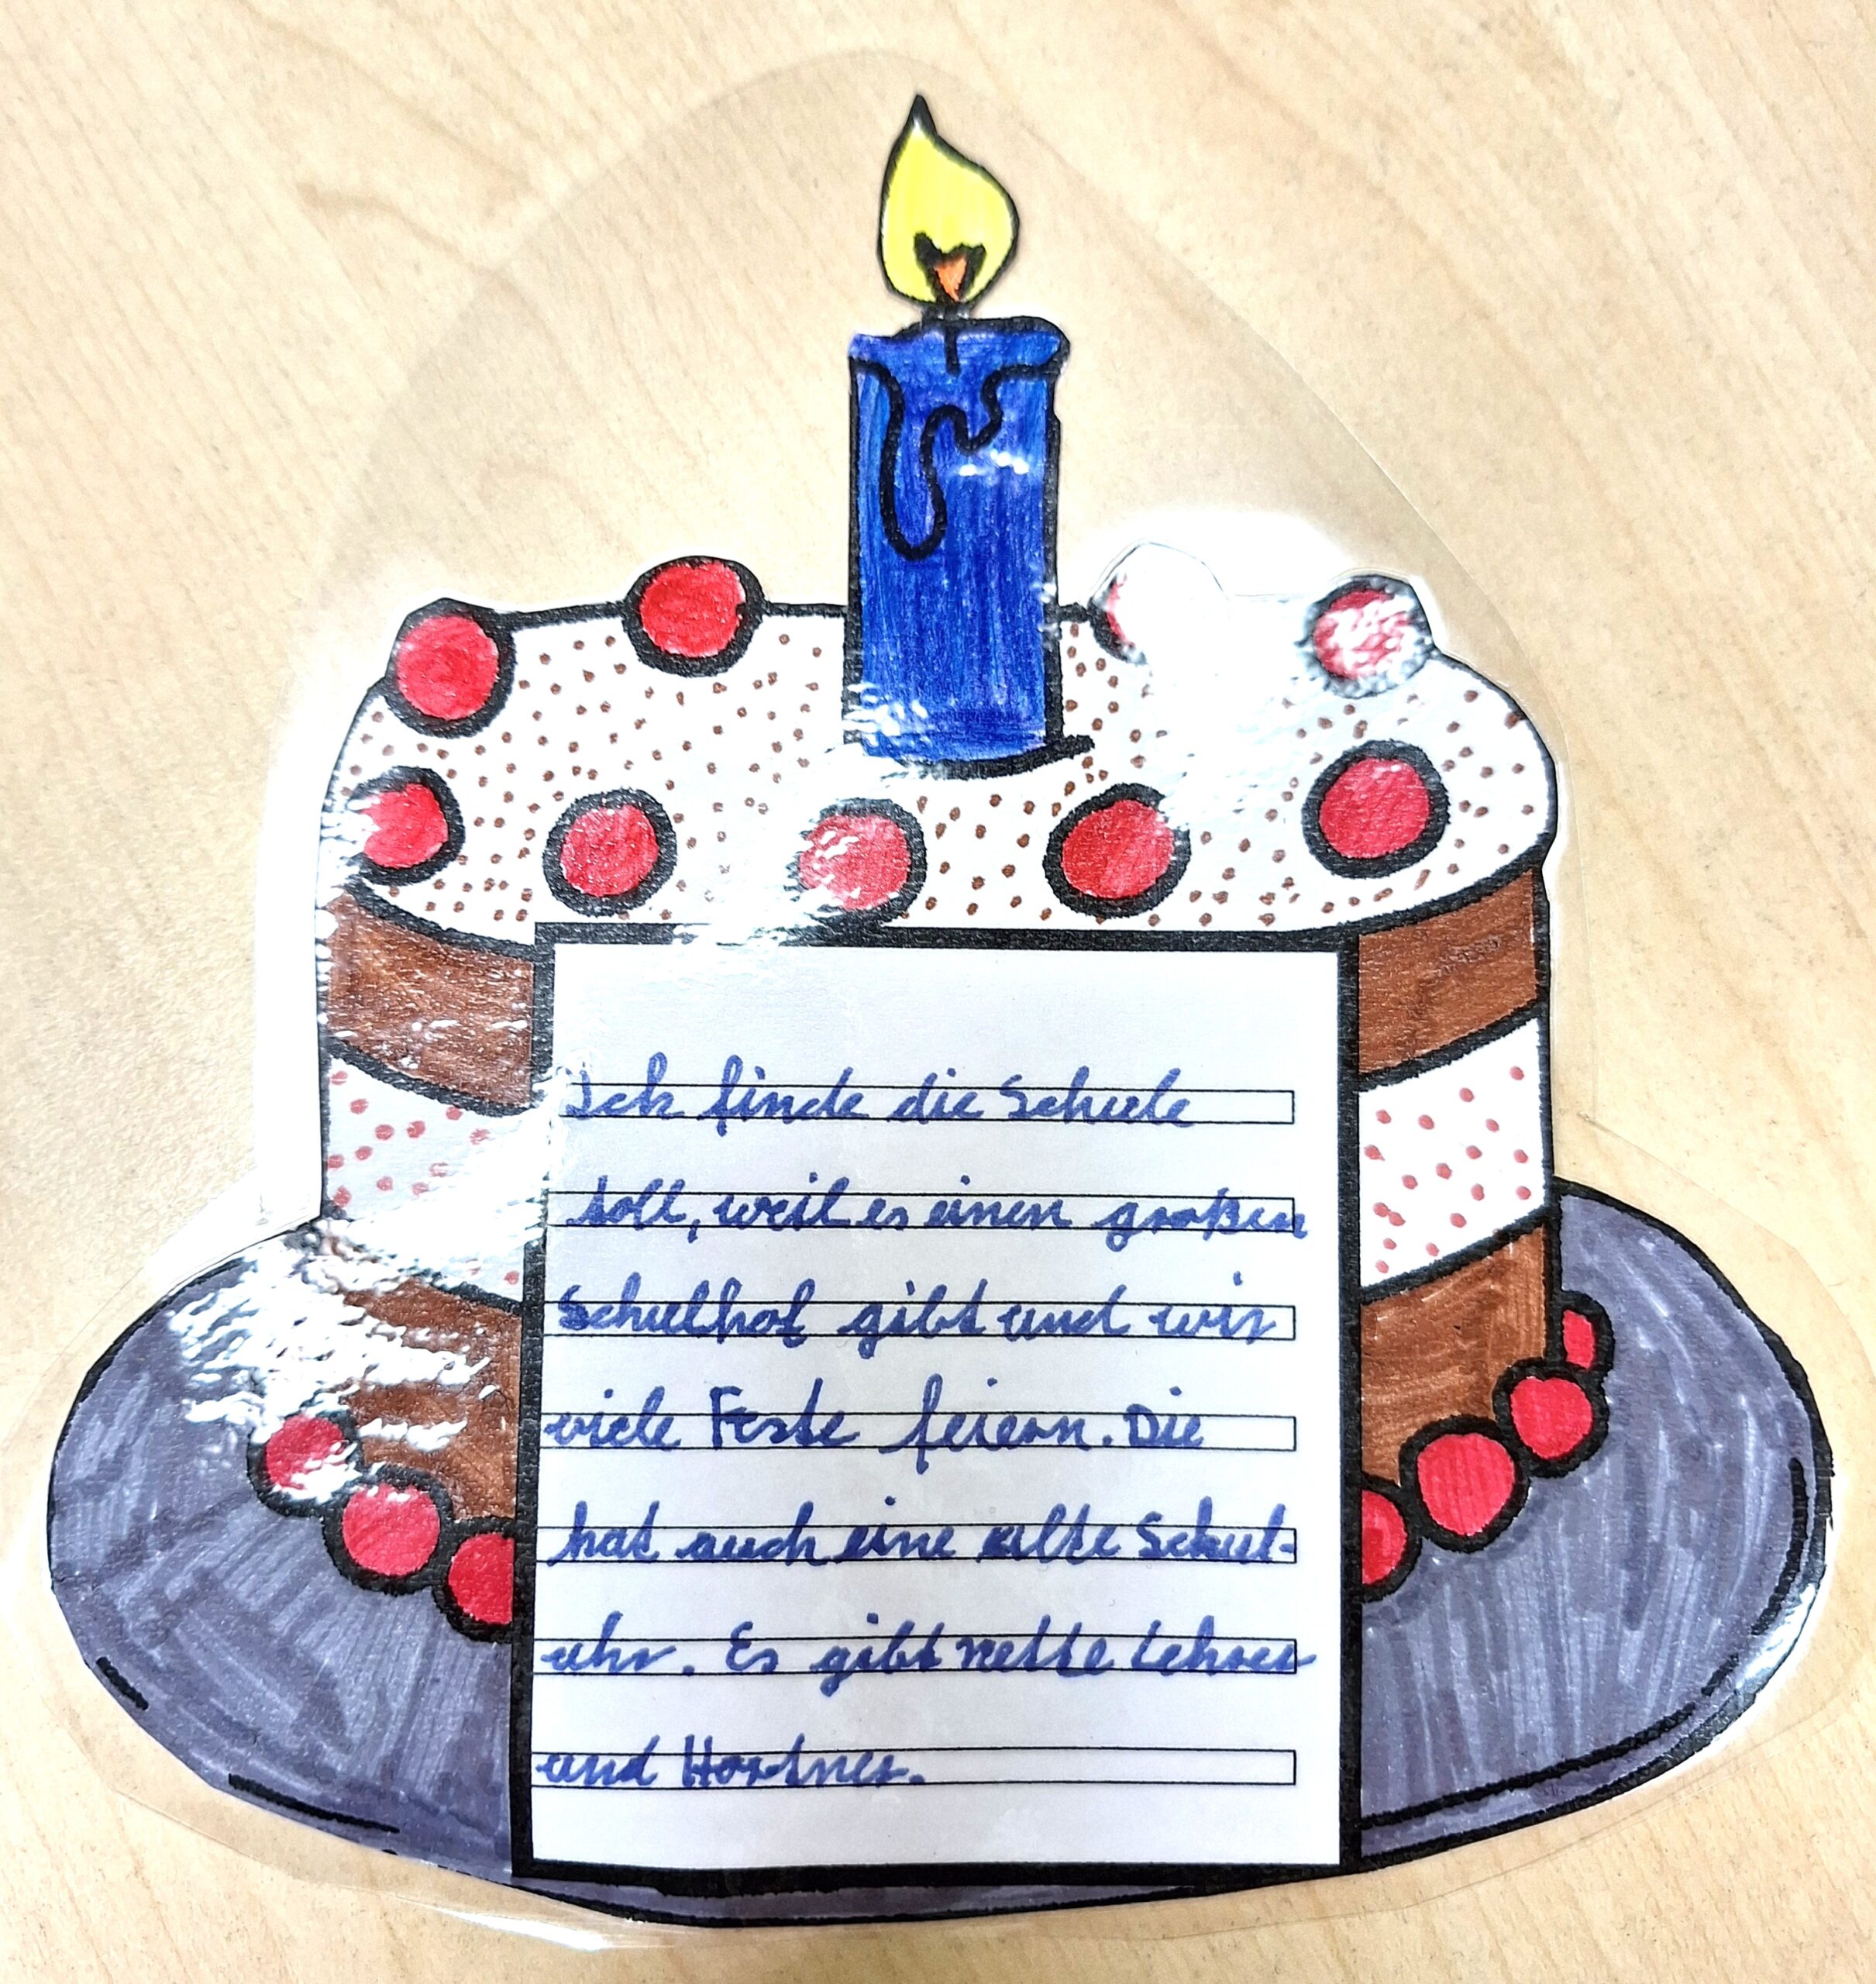 Ich finde die Schule
toll, weil es einen großen
Schulhof gibt und wir
viele Feste feiern. Die
hat auch eine alte Schul-
uhr. Es gibt nette Lehrer
und Hortner.